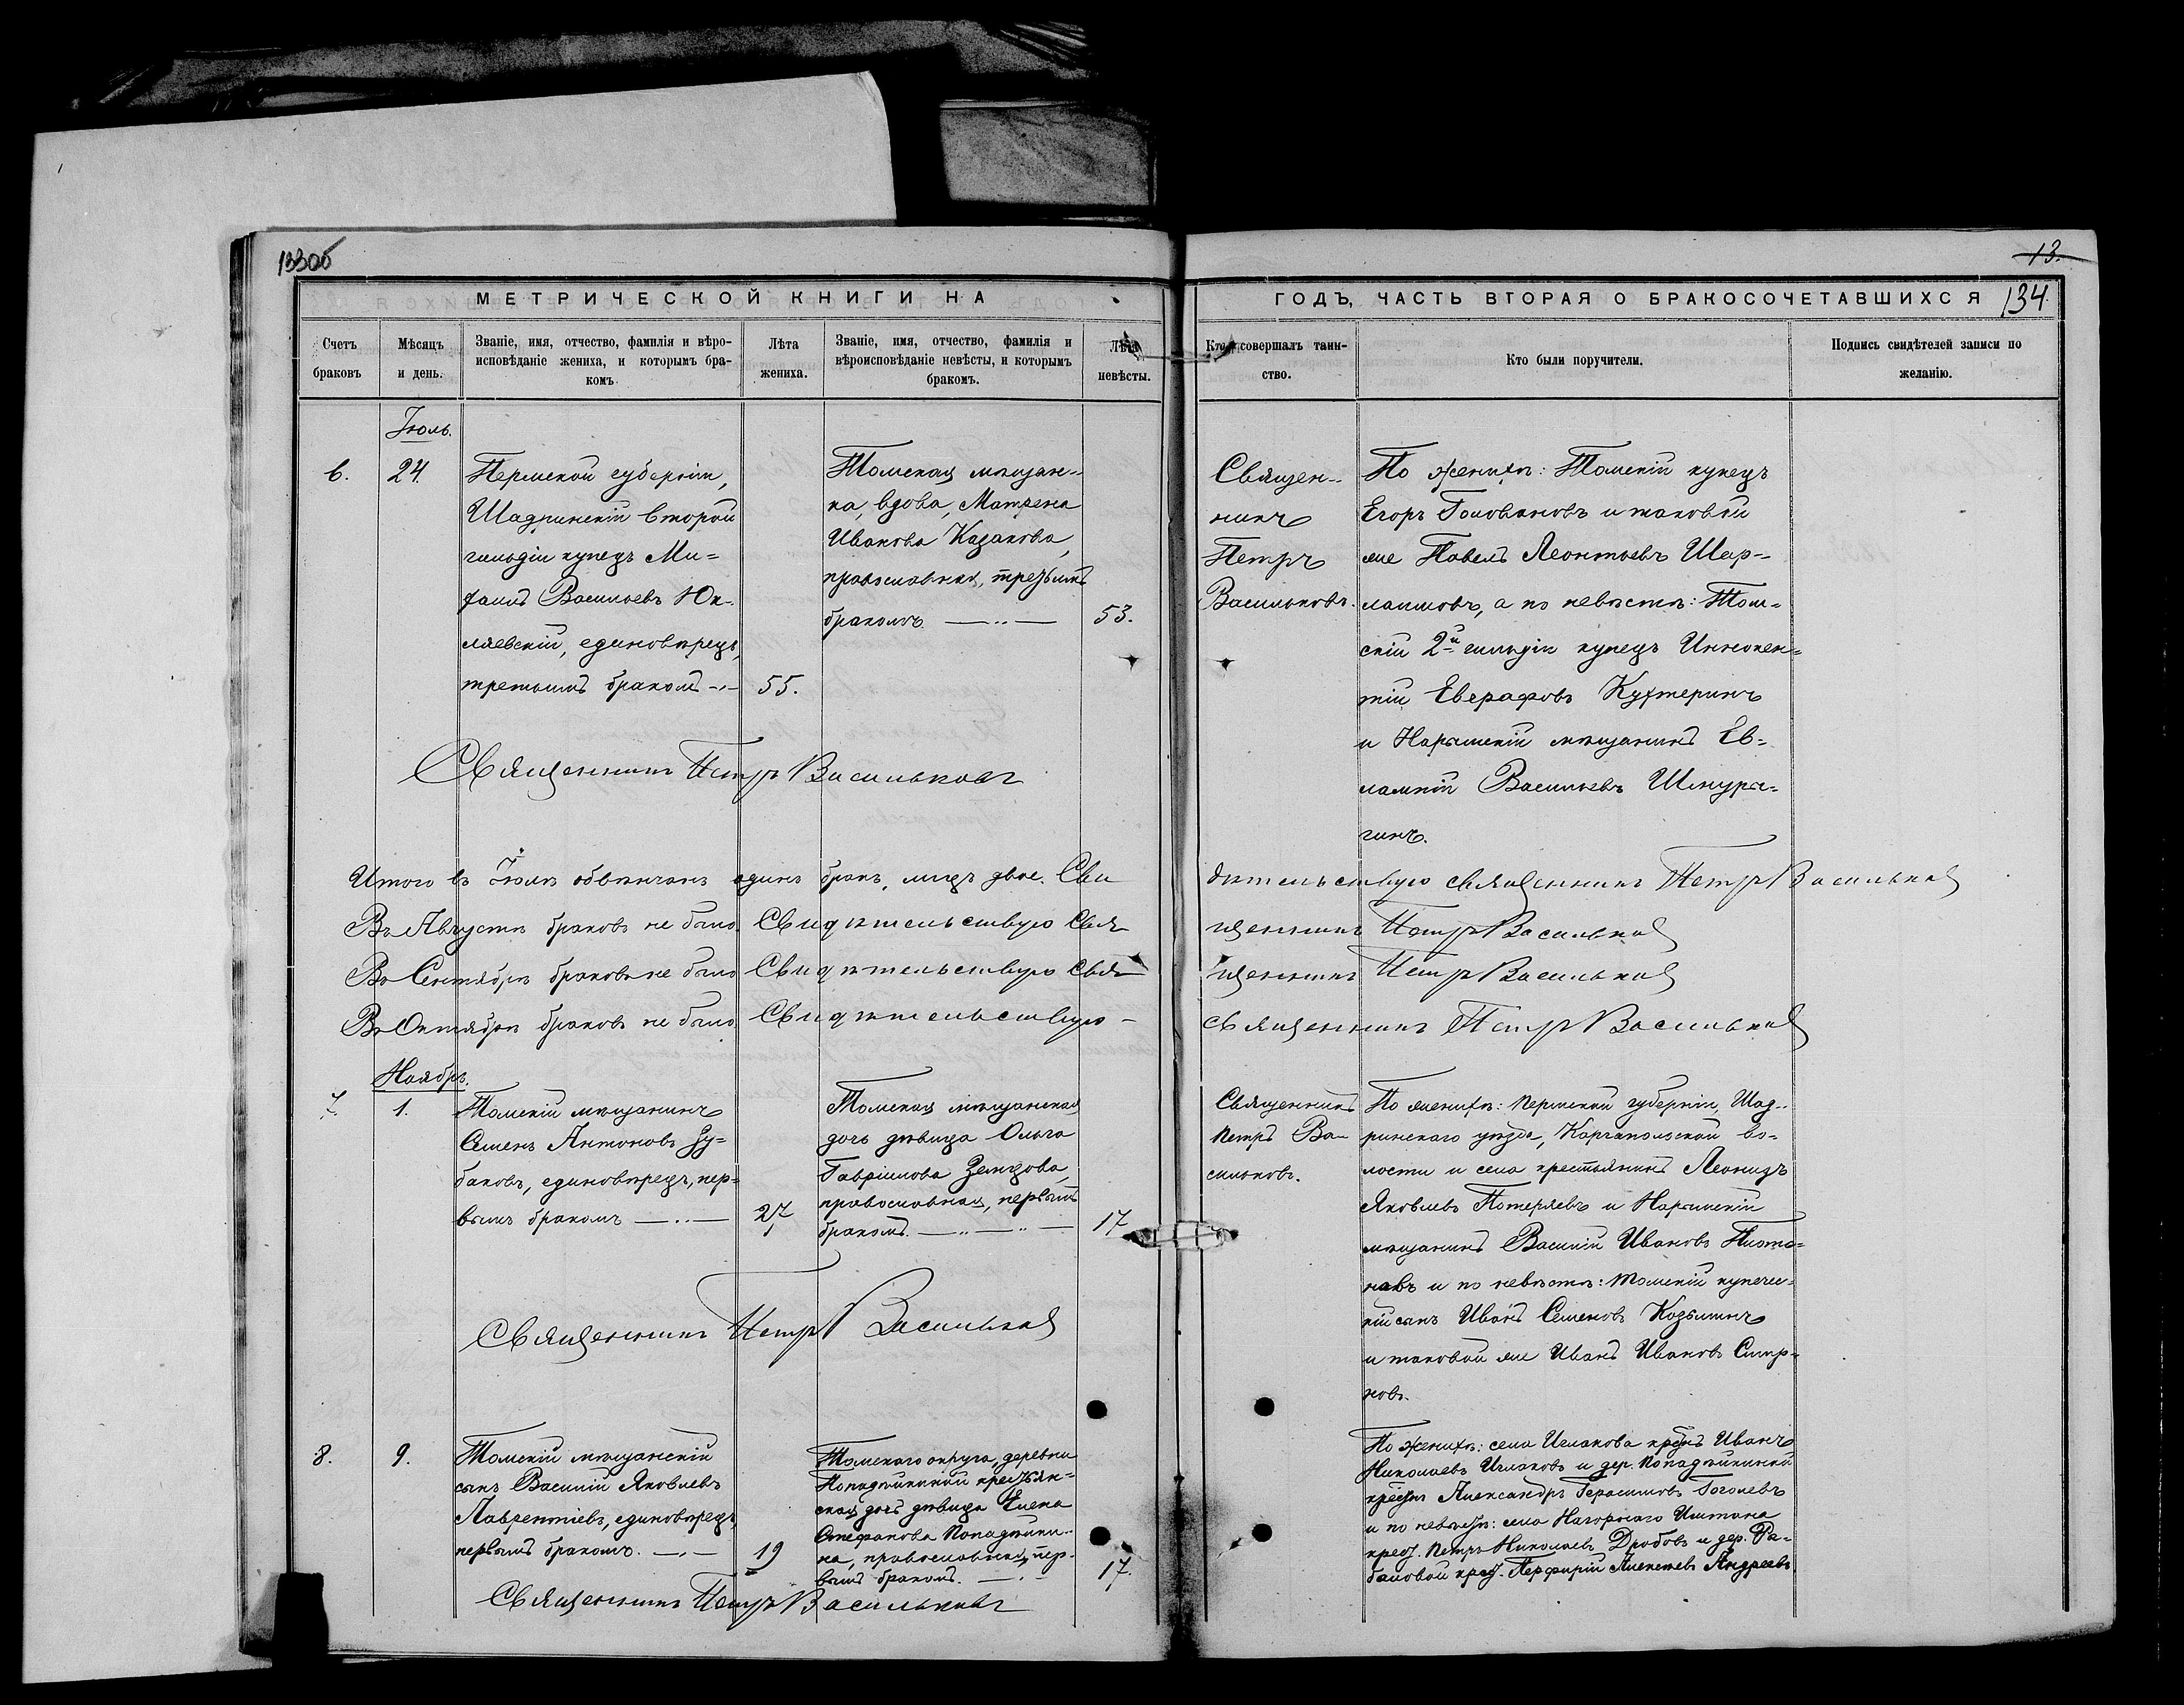 133об
13.
МЕТРИЧЕСКОЙ КНИГИ НА
ГОДЪ, ЧАСТЬ ВТОРАЯ О БРАКОСОЧЕТАВШИХСЯ
134.
Счетъ
браковъ
Мѣсяцъ
и день.
Званіе, имя, отчество, фамилія и вѣро-
исповѣданіе жениха, и которымъ бра-
комъ.
Лѣта
жениха.
Званіе, имя, отчество, фамилія и
вѣроисповѣданіе невѣсты, и которымъ
бракомъ.
Лѣта
невѣсты.
Кто совершалъ таин-
ство.
Кто были поручители.
Подпись свидѣтелей записи по
желанію.
Іюль.
6.
24.
Пермской губерніи,
Шадринскій второй
гильдіи купецъ Ми-
хаилъ Васильевъ Юк-
ляевскій, единовѣрецъ,
третьимъ бракомъ
55.
Томская мѣщан-
ка, вдова, Матрена
Иванова Казакова,
православная, третьимъ
бракомъ
53.
Священ-
никъ
Петръ
Васильковъ.
По женихѣ: Томскій купецъ
Егоръ Головановъ и таковой
же Павелъ Леонтьевъ Шар-
лаимовъ, а по невѣстѣ: Том-
скій 2й гильдіи купецъ Иннокен-
тій Евграфовъ Кухтеринъ
и Нарымскій мѣщанинъ Ев-
лампій Васильевъ Шмуры-
гинъ.
Священникъ Петръ Васильковъ
Итого въ Іюлѣ обвѣнчанъ одинъ бракъ, лицъ двое. Сви
дѣтельствую священникъ Петръ Васильков
Въ Августѣ браковъ не было. Свидѣтельствую Свя
щенникъ Петръ Васильков
Въ Сентябрѣ браковъ не было Свидѣтельствую Свя
щенникъ Петръ Васильков
Въ Октябрѣ браковъ не было. Свидѣтельствую
священникъ Петръ Васильков
Ноябрь.
7.
1.
Томскій мѣщанинъ
Семенъ Антоновъ Зу-
баковъ, единовѣрецъ, пер-
вымъ бракомъ
27
Томская мѣщанская
дочь дѣвица Ольга
Гавріилова Земцова,
православная, первымъ
бракомъ.
17
Священникъ
Петръ Ва-
сильковъ.
По женихѣ: Пермской губерніи, Шад-
ринскаго уѣзда, Каргапольской во-
лости и села крестьянинъ Леонидъ
Яковлевъ Потеряевъ и Нарымскій
мѣщанинъ Василій Ивановъ Плато-
новъ и по невѣстѣ: Томскій купечес-
кій сынъ Иванъ Семеновъ Козьминъ
и таковой же Иванъ Ивановъ Смир-
новъ.
Священникъ Петръ Васильков
8.
9.
Томскій мѣщанскій
сынъ Василій Яковлевъ
Лаврентіевъ, единовѣрецъ,
первымъ бракомъ.
19
Томскаго округа, деревни
Попадѣйкиной крестьян-
ская дочь дѣвица Елена
Стефанова Попадѣйки-
на, православная, пер-
вымъ бракомъ.
17.
По женихѣ: села Иглакова Иванъ
Николаевъ Иглаковъ и дер. Попадѣйкиной
Александръ Герасимовъ Гоголевъ
и по невѣстѣ: села Нагорнаго Иштана
крест. Петръ Николаевъ Дробовъ и дер. Ра-
баловой крест. Перфирій Алексѣевъ Андреевъ.
Священникъ Петръ Васильковъ